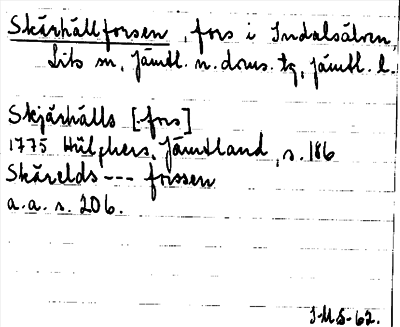 Skärhällforsen, fors i Indalsälven,
Lits sn, Jämtl. n. doms. tg, Jämtl. l.
Skjärhälls [-fors]
1775 Hülphers, Jämtland, s. 186
Skärelds --- forssen
a.a. s. 206.
IMS-62.